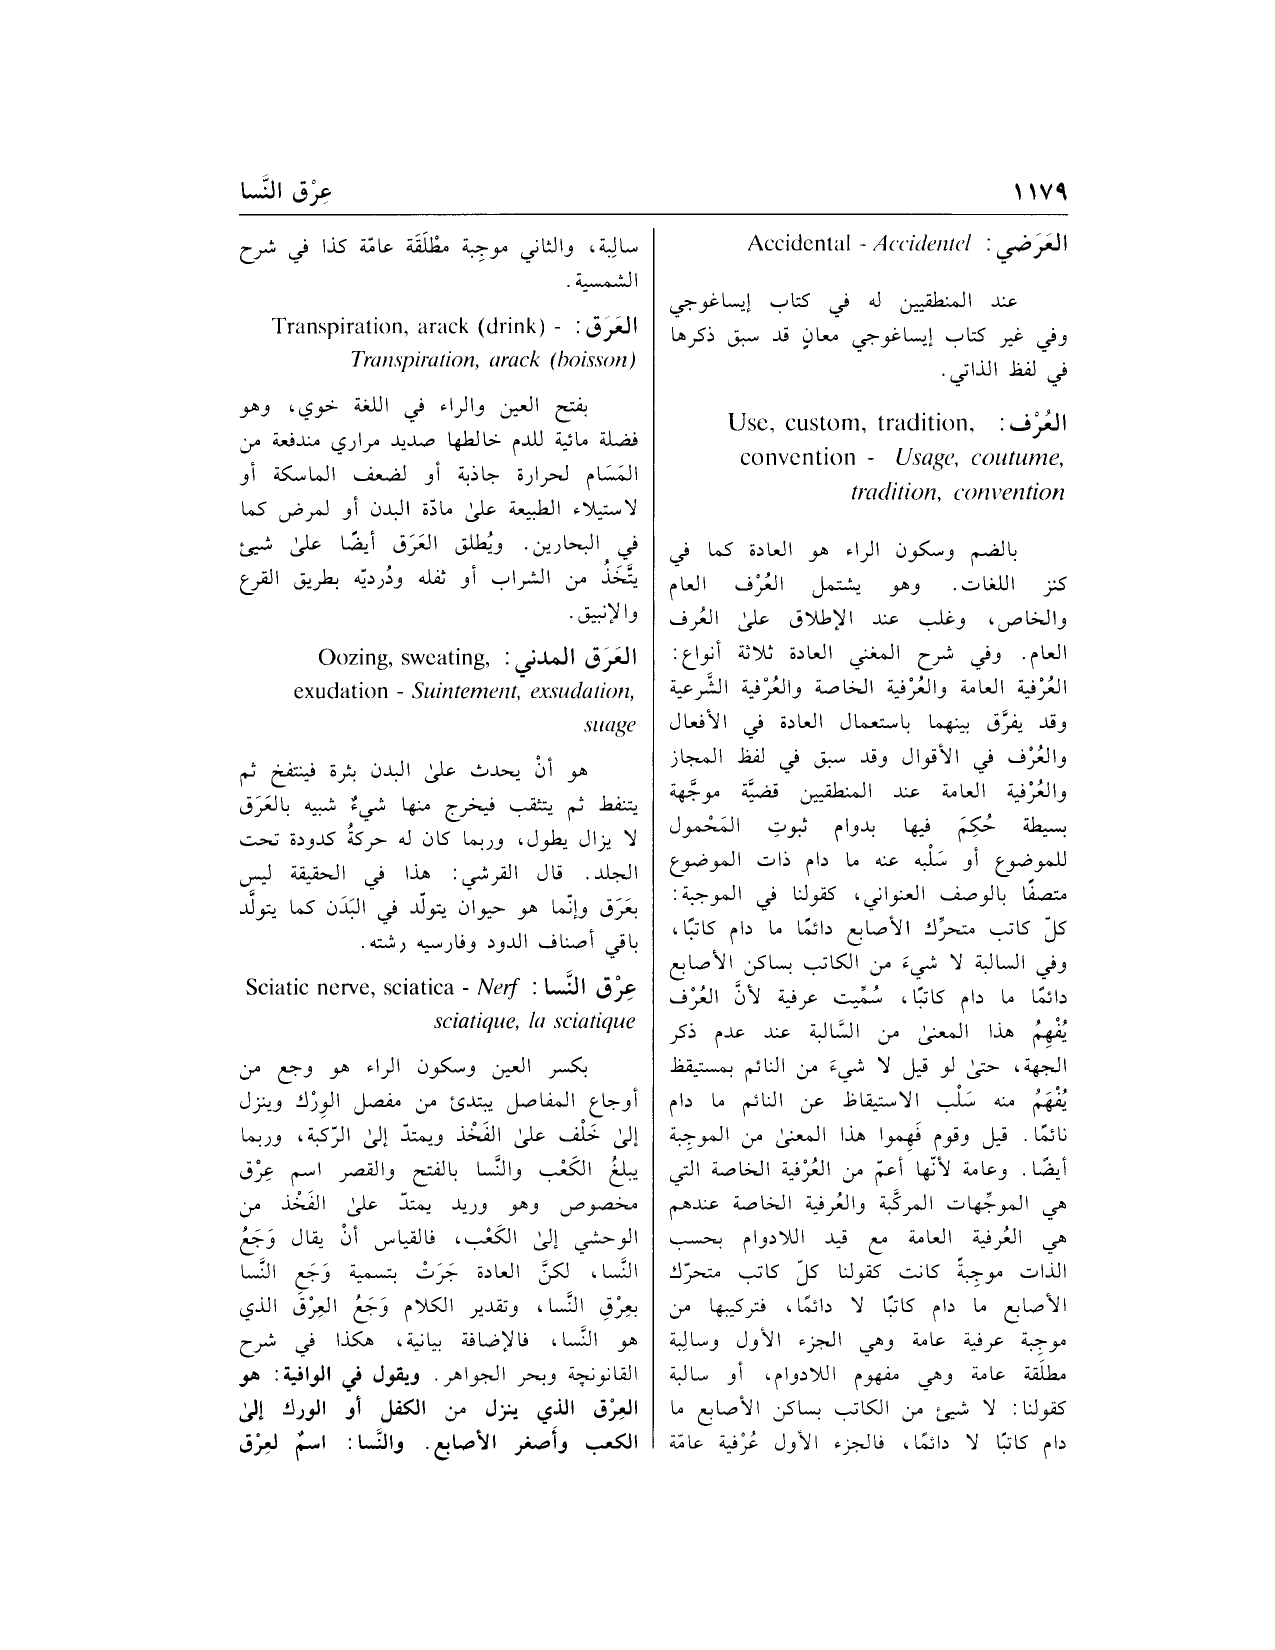 ١١٧٩
عِرْق النَّسا
العَرَضي : Accidental - Accidentel
عند المنطقيين له في كتاب إيساغوجي
وفي غير كتاب إيساغوجي معانٍ قد سبق ذكرها
في لفظ الذاتي.
العُرْف : Use, custom, tradition,
convention - Usage, coutume,
tradition, convention
بالضم وسكون الراء هو العادة كما في
كنز اللغات. وهو يشتمل العُرْف العام
والخاص، وغلب عند الإطلاق علىٰ العُرف
العام. وفي شرح المغني العادة ثلاثة أنواع:
العُرْفية العامة والعُرْفية الخاصة والعُرْفية الشَّرعية
وقد يفرَّق بينهما باستعمال العادة في الأفعال
والعُرْف في الأقوال وقد سبق في لفظ المجاز
والعُرْفية العامة عند المنطقيين قضيَّة موجَّهة
بسيطة حُكِمَ فيها بدوام ثبوتِ المَحْمول
للموضوع أو سَلْبه عنه ما دام ذات الموضوع
متصفًا بالوصف العنواني، كقولنا في الموجبة:
كلّ كاتب متحرِّك الأصابع دائمًا ما دام كاتبًا،
وفي السالبة لا شيءَ من الكاتب بساكن الأصابع
دائمًا ما دام كاتبًا، سُمِّيت عرفية لأنَّ العُرْف
يُفْهِمُ هذا المعنىٰ من السَّالبة عند عدم ذكر
الجهة، حتىٰ لو قيل لا شيءَ من النائم بمستيقظ
يُفْهَمُ منه سَلْب الاستيقاظ عن النائم ما دام
نائمًا. قيل وقوم فَهِموا هذا المعنىٰ من الموجِبة
أيضًا. وعامة لأنّها أعمّ من العُرْفية الخاصة التي
هي الموجِّهات المركَّبة والعُرفية الخاصة عندهم
هي العُرفية العامة مع قيد اللادوام بحسب
الذات موجِبةً كانت كقولنا كلّ كاتب متحرّك
الأصابع ما دام كاتبًا لا دائمًا، فتركيبها من
موجبة عرفية عامة وهي الجزء الأول وسالبة
مطلَقة عامة وهي مفهوم اللادوام، أو سالبة
كقولنا: لا شيئ من الكاتب بساكن الأصابع ما
دام كاتبًا لا دائمًا، فالجزء الأول عُرْفية عامّة
سالِبة، والثاني موجِبة مطْلَقَة عامّة كذا في شرح
الشمسية.
العَرَق : Transpiration, arack (drink) -
Transpiration, arack (boisson)
بفتح العين والراء في اللغة خوي، وهو
فضلة مائية للدم خالطها صديد مراري مندفعة من
المَسَام لحرارة جاذبة أو لضعف الماسكة أو
لاستيلاء الطبيعة علىٰ مادّة البدن أو لمرض كما
في البحارين. ويُطلق العَرَق أيضًا علىٰ شيئ
يتَّخَذُ من الشراب أو ثفله ودُرديّه بطريق القرع
والإنبيق.
العَرَق المدني : Oozing, sweating,
exudation - Suintement, exsudation,
suage
هو أنْ يحدث علىٰ البدن بثرة فينتفخ ثم
يتنفط ثم يتثقب فيخرج منها شيءٌ شبيه بالعَرَق
لا يزال يطول، وربما كان له حركةُ كدودة تحت
الجلد. قال القرشي: هذا في الحقيقة ليس
بعَرَق وإنّما هو حيوان يتولّد في البَدَن كما يتولَّد
باقي أصناف الدود وفارسيه رشته.
عِرْق النَّسا : Sciatic nerve, sciatica - Nerf
sciatique, la sciatique
بكسر العين وسكون الراء هو وجع من
أوجاع المفاصل يبتدئ من مفصل الوِرْك وينزل
إلىٰ خَلْف علىٰ الفَخْذ ويمتدّ إلىٰ الرّكبة، وربما
يبلغُ الكَعْب والنَّسا بالفتح والقصر اسم عِرْق
مخصوص وهو وريد يمتدّ علىٰ الفَخْذ من
الوحشي إلىٰ الكَعْب، فالقياس أنْ يقال وَجَعُ
النَّسا، لكنَّ العادة جَرَتْ بتسمية وَجَع النَّسا
بعِرْقِ النَّسا، وتقدير الكلام وَجَعُ العِرْقَ الذي
هو النَّسا، فالإضافة بيانية، هكذا في شرح
القانونچة وبحر الجواهر. ويقول في الوافية: هو
العِرْق الذي ينزل من الكفل أو الورك إلىٰ
الكعب وأصغر الأصابع. والنَّسا: اسمٌ لعِرْق